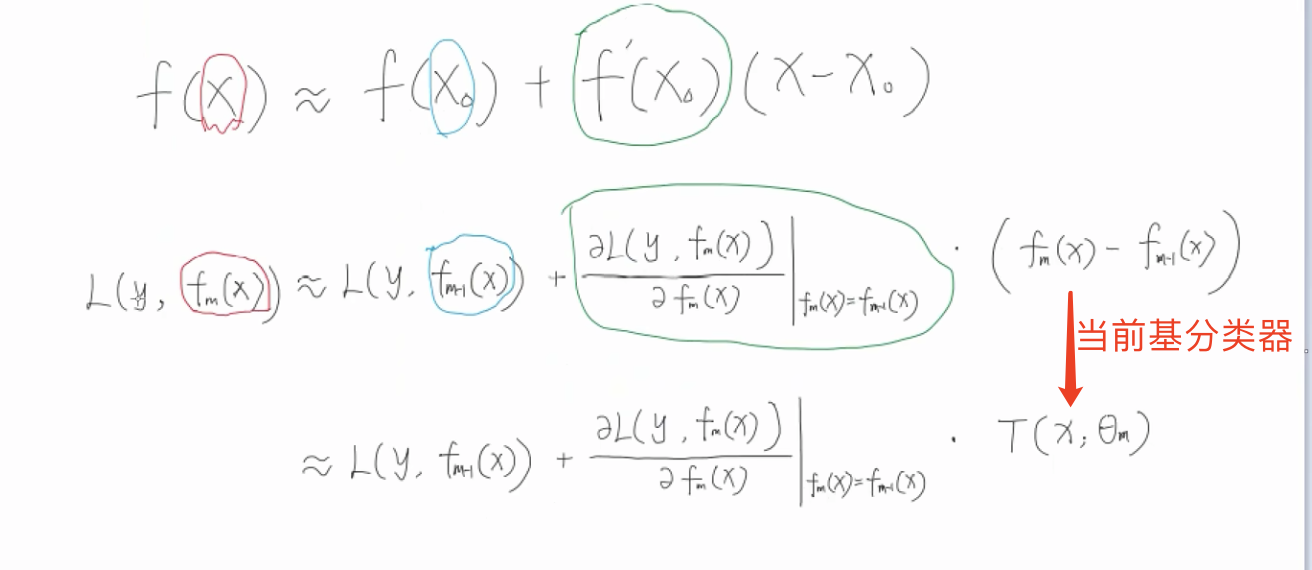 f(x) ≈ f(x₀) + f'(x₀)(x-x₀)
L(y, fₘ(x)) ≈ L(y, fₘ₋₁(x)) + ∂L(y, fₘ(x)) / ∂fₘ(x) |fₘ(x)=fₘ₋₁(x) · (fₘ(x) - fₘ₋₁(x))
当前基分类器
≈ L(y, fₘ₋₁(x)) + ∂L(y, fₘ(x)) / ∂fₘ(x) |fₘ(x)=fₘ₋₁(x) · T(x; θₘ)